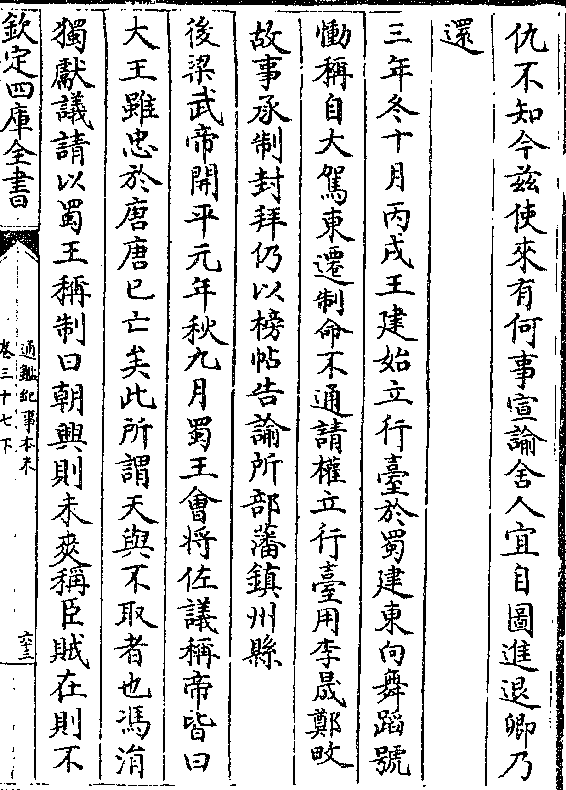 仇不知今茲使來有何事宣諭舍人宜自圖進退卿乃
還
三年冬十月丙戌王建始立行臺於蜀建東向舞蹈號
慟稱自大駕東遷制命不通請權立行臺用李晟鄭畋
故事承制封拜仍以榜帖告諭所部藩鎮州縣
後梁武帝開平元年秋九月蜀王會將佐議稱帝皆曰
大王雖忠於唐唐已亡矣此所謂天與不取者也馮涓
獨獻議請以蜀王稱制曰朝興則未爽稱臣賊在則不
欽定四庫全書
通鑑紀事本末
卷三十七下
六三